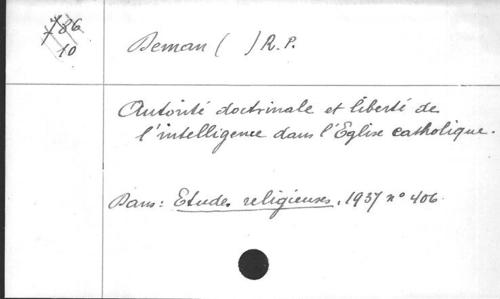 786
10
Deman ( ) R. P.
Autorité doctrinale et liberté de
l'intelligence dans l'Eglise catholique.
Dans: Etudes religieuses, 1937 n° 406.